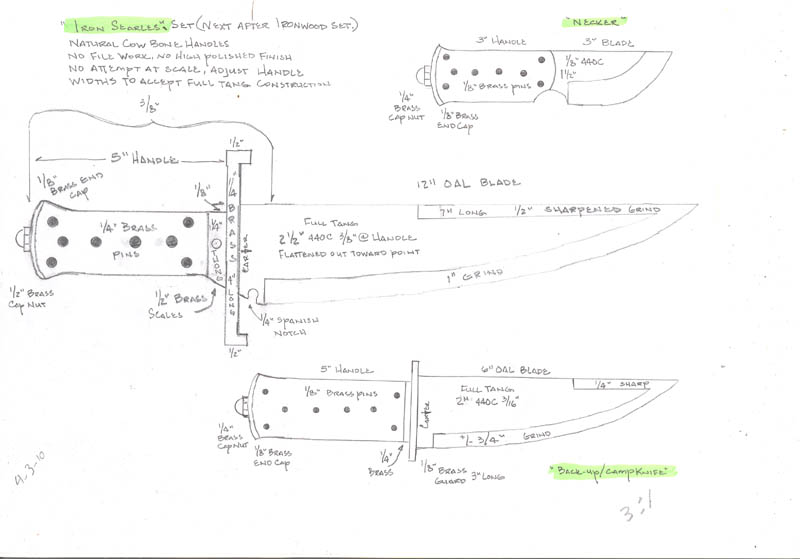 "Iron Searles" Set (Next After Ironwood Set.)
Natural Cow Bone Handles
No File Work, No High Polished Finish
No Attempt at Scale, Adjust Handle
Widths to Accept Full Tang Construction
"Necker"
3" Handle
3" Blade
1/8" 440C
1 1/2"
1/8" Brass Pins
1/4" Brass Cap Nut
1/8" Brass End Cap
3/8"
1/2"
5" Handle
1/8" Brass End Cap
1/8"
12" OAL Blade
7" Long
1/2" Sharpened Grind
1/4" Brass Pins
1/4"
Thong
1/4" Brass 4" Long
Full Tang
2 1/2" 440C 3/8" @ Handle
Flattened out toward point
1" Grind
1/2" Brass Cap Nut
1/2" Brass Scales
1/4" Spanish Notch
1/2"
5" Handle
6" OAL Blade
1/8" Brass Pins
Full Tang
2" 440C 3/16"
1/4" Sharp
+/- 3/4" Grind
1/4" Brass Cap Nut
1/8" Brass End Cap
1/4" Brass
1/8" Brass Guard 3" Long
"Back-up/Camp Knife"
4-3-10